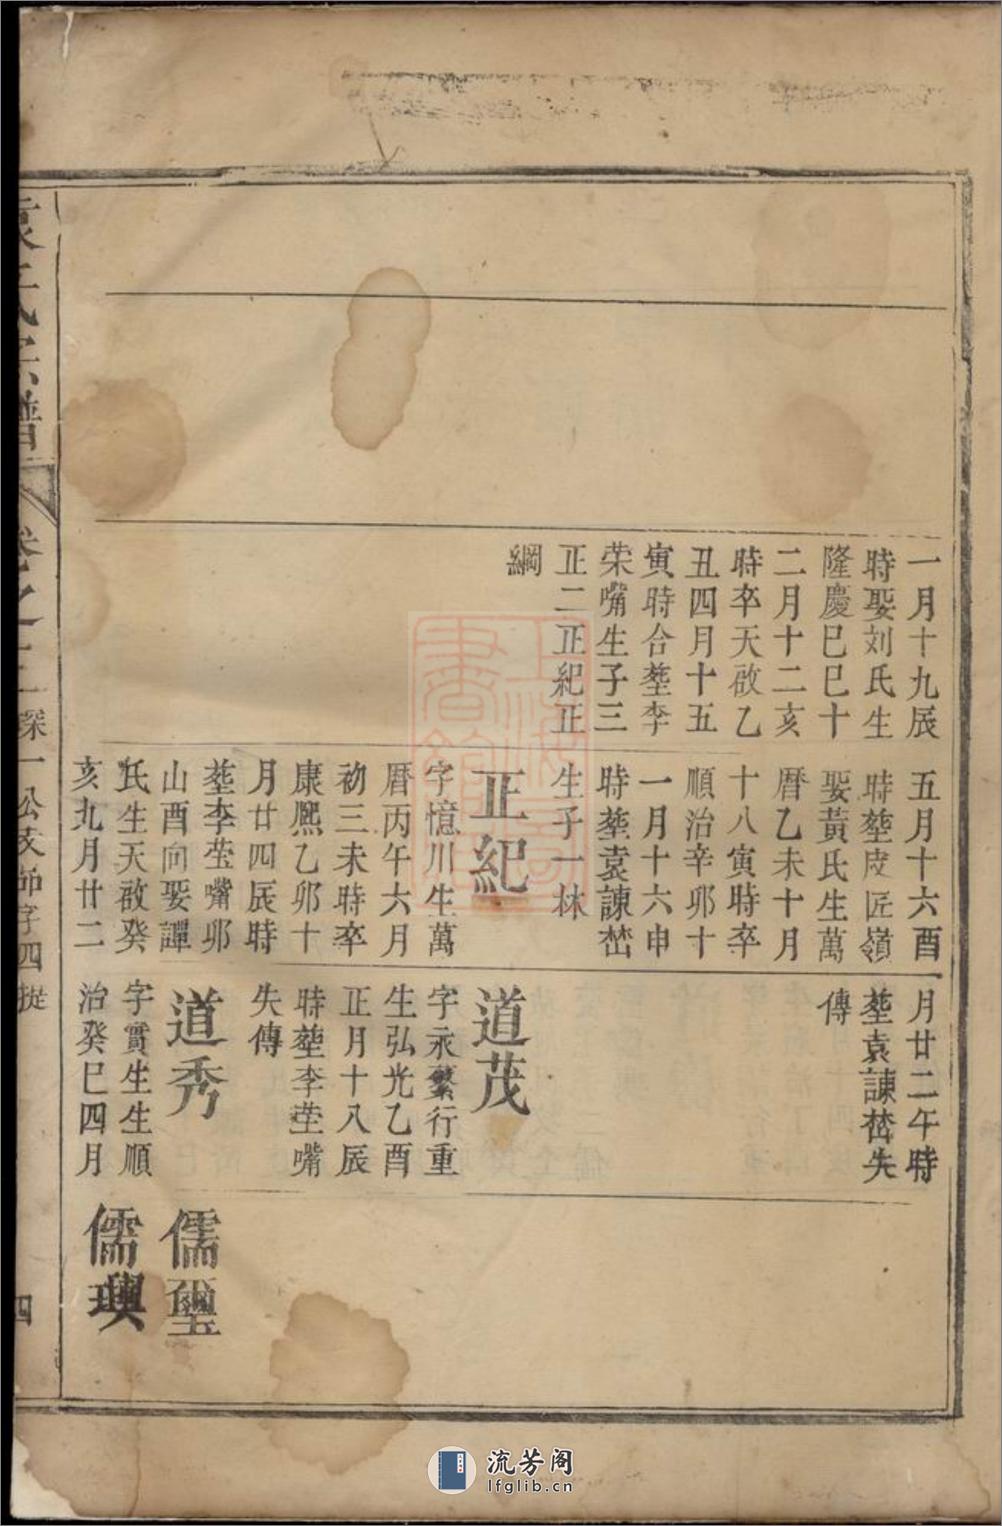 一月十九辰
時娶刘氏生
隆慶巳巳十
二月十二亥
時卒天啟乙
丑四月十五
寅時合塟李
荣嘴生子三
正二正紀正
綱
五月十六酉
時塟皮匠嶺
娶黃氏生萬
曆乙未十月
十八寅時卒
順治辛卯十
一月十六申
時塟袁諫嵆
生子一林
正紀
字憶川生萬
曆丙午六月
初三未時卒
康熙乙卯十
月廿四辰時
塟李莹嘴卯
山酉向娶譚
氏生天啟癸
亥九月廿二
月廿二午時
塟袁諫嵆失
傳
道茂
字永繁行重
生弘光乙酉
正月十八辰
時塟李莹嘴
失傳
道秀
字實生生順
治癸巳四月
儒璽
儒璵
袁氏宗譜
卷之
深一公支師字四從
四
流芳阁
lfglib.cn